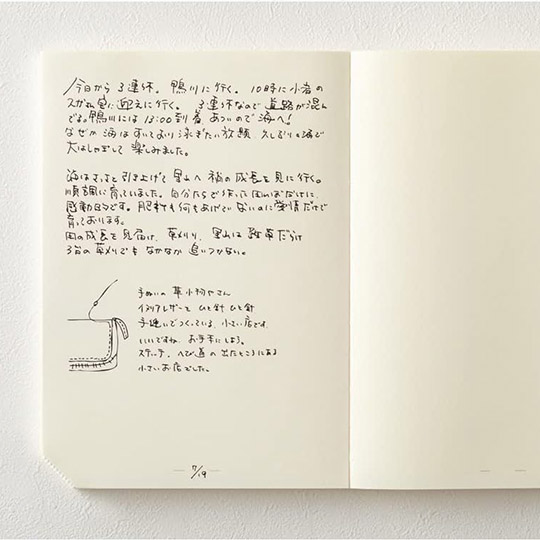 今日から3連休。鴨川に行く。10時に小岩の
迎えに行く。3連休なので道路が混ん
でる。鴨川には13:00到着。あついので海へ!
なぜか海はすいており泳ぎたい放題。久しぶりの海で
大はしゃぎして楽しみました。
海はさっさと引き上げて里山へ 稲の成長を見に行く。
順調に育っていました。自分たちで作った田んぼだけに、
感動ひとしおです。肥料も何もあげていないのに愛情だけで
育っております。
田の成長を見届け、草刈り、里山は雑草だらけ
3台の草刈りでもなかなか追いつかない。
手ぬいの革小物やさん
イタリアレザーを ひと針ひと針
手縫いでつくっている、小さい店です。
いいですね。お手本にしよう。
ステッチ、へび道の出たところにある
小さいお店でした。
7/19